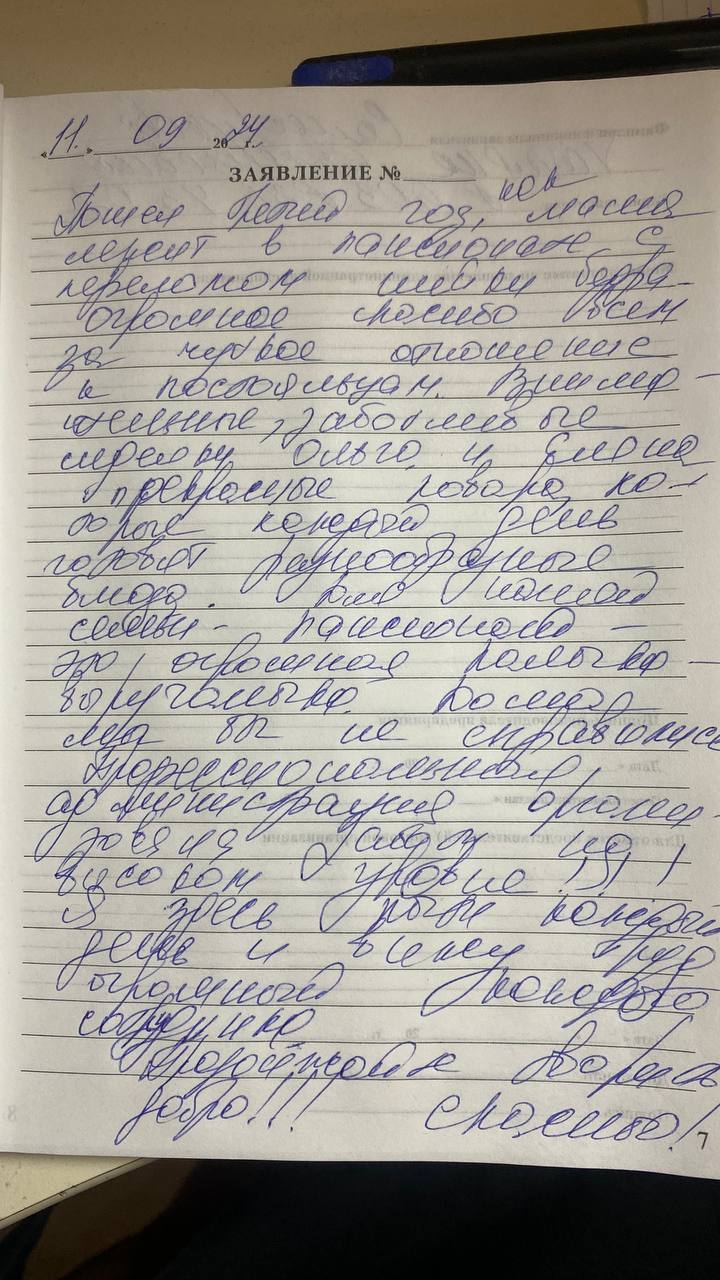 «11.» 09 2024 г.
ЗАЯВЛЕНИЕ №
Пошел третий год, как мама
лежит в пансионате с
переломом шейки бедра.
Огромное спасибо всем
за чуткое отношение
к постояльцам. Внима-
тельные, заботливые
сиделки Ольга и Елена
прекрасные повара, ко-
торые каждый день
готовят разнообразные
блюда. Для нашей
семьи - пансионат -
это огромная
выручалочка. Дома
мы бы не справились
Профессиональная
администрация органи-
зована работа на
высоком уровне!!!
Я здесь почти каждый
день и вижу труд
огромный каждого
сотрудника
Продолжайте творить
добро!!! Спасибо!
7